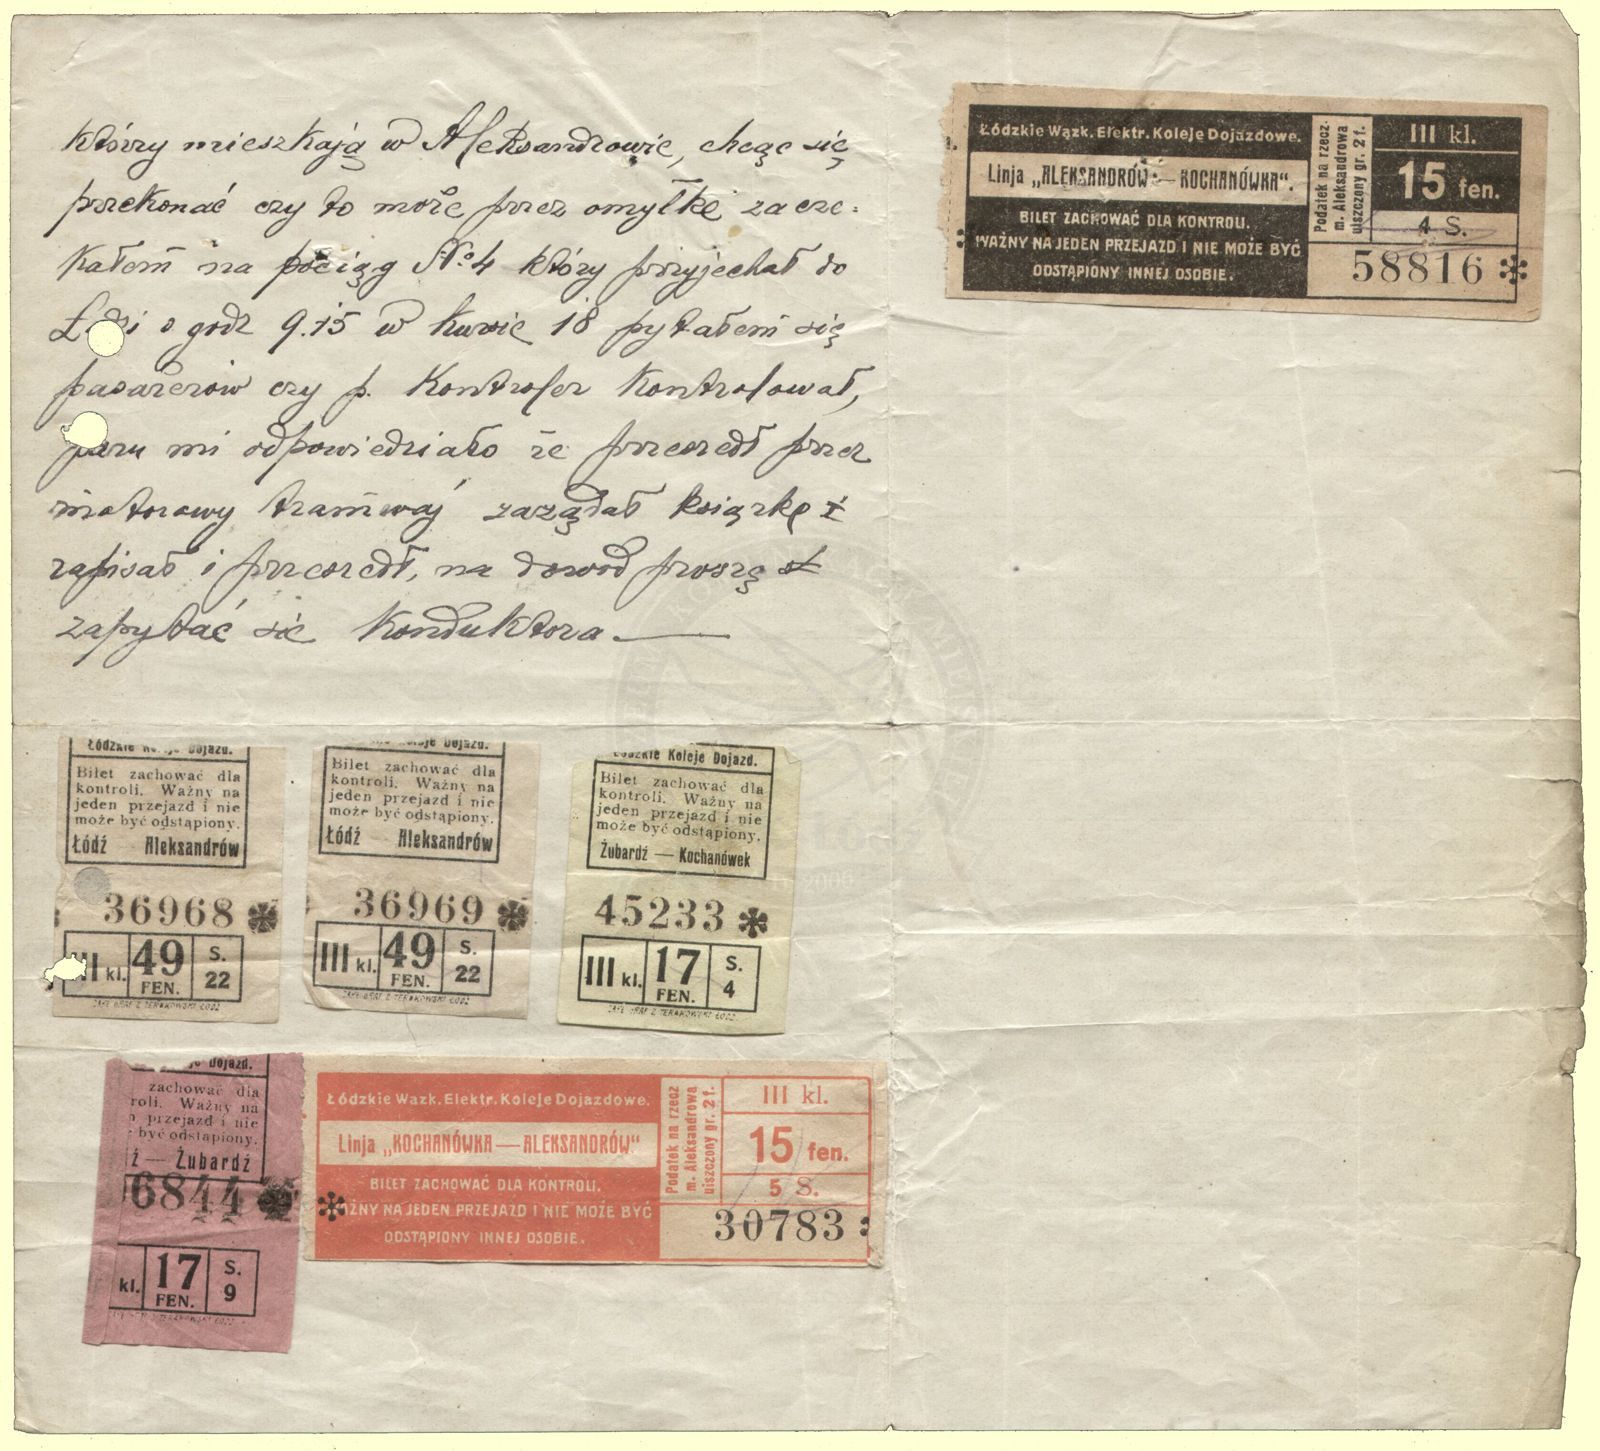 którzy mieszkają w Aleksandrowie, chcąc się
przekonać czy to może przez omyłkę zacze-
kałem na pociąg № 4 który przyjechał do
Łodzi o godz 9.15 w kursie 18 pytałem się
pasażerów czy p. Kontroler Kontrolował,
paru mi odpowiedziało że przeszedł przez
motorowy tramwaj zażądał książkę
zapisał i przeszedł, na dowód proszę
zapytać się Konduktora
Łódzkie Wązk. Elektr. Koleje Dojazdowe.
Linja „ALEKSANDRÓW — KOCHANÓWKA".
BILET ZACHOWAĆ DLA KONTROLI.
WAŻNY NA JEDEN PRZEJAZD I NIE MOŻE BYĆ
ODSTĄPIONY INNEJ OSOBIE.
Podatek na rzecz
m. Aleksandrowa
uiszczony gr. 2 f.
III kl.
15 fen.
4 S.
58816
Łódzkie Koleje Dojazd.
Bilet zachować dla
kontroli. Ważny na
jeden przejazd i nie
może być odstąpiony.
Łódź Aleksandrów
36968
III kl. 49 FEN. S. 22
ZAKŁ. GRAF. Z. TERAKOWSKI ŁÓDŹ
Koleje Dojazd.
Bilet zachować dla
kontroli. Ważny na
jeden przejazd i nie
może być odstąpiony.
Łódź Aleksandrów
36969
III kl. 49 FEN. S. 22
ZAKŁ. GRAF. Z. TERAKOWSKI ŁÓDŹ
Łódzkie Koleje Dojazd.
Bilet zachować dla
kontroli. Ważny na
jeden przejazd i nie
może być odstąpiony.
Żubardź — Kochanówek
45233
III kl. 17 FEN. S. 4
ZAKŁ. GRAF. Z. TERAKOWSKI ŁÓDŹ
Dojazd.
zachować dla
roli. Ważny na
przejazd i nie
być odstąpiony.
ź — Żubardź
6844
kl. 17 FEN. S. 9
Łódzkie Wazk. Elektr. Koleje Dojazdowe.
Linja „KOCHANÓWKA — ALEKSANDRÓW"
BILET ZACHOWAĆ DLA KONTROLI.
WAŻNY NA JEDEN PRZEJAZD I NIE MOŻE BYĆ
ODSTĄPIONY INNEJ OSOBIE.
Podatek na rzecz
m. Aleksandrowa
uiszczony gr. 2 f.
III kl.
15 fen.
5 S.
30783